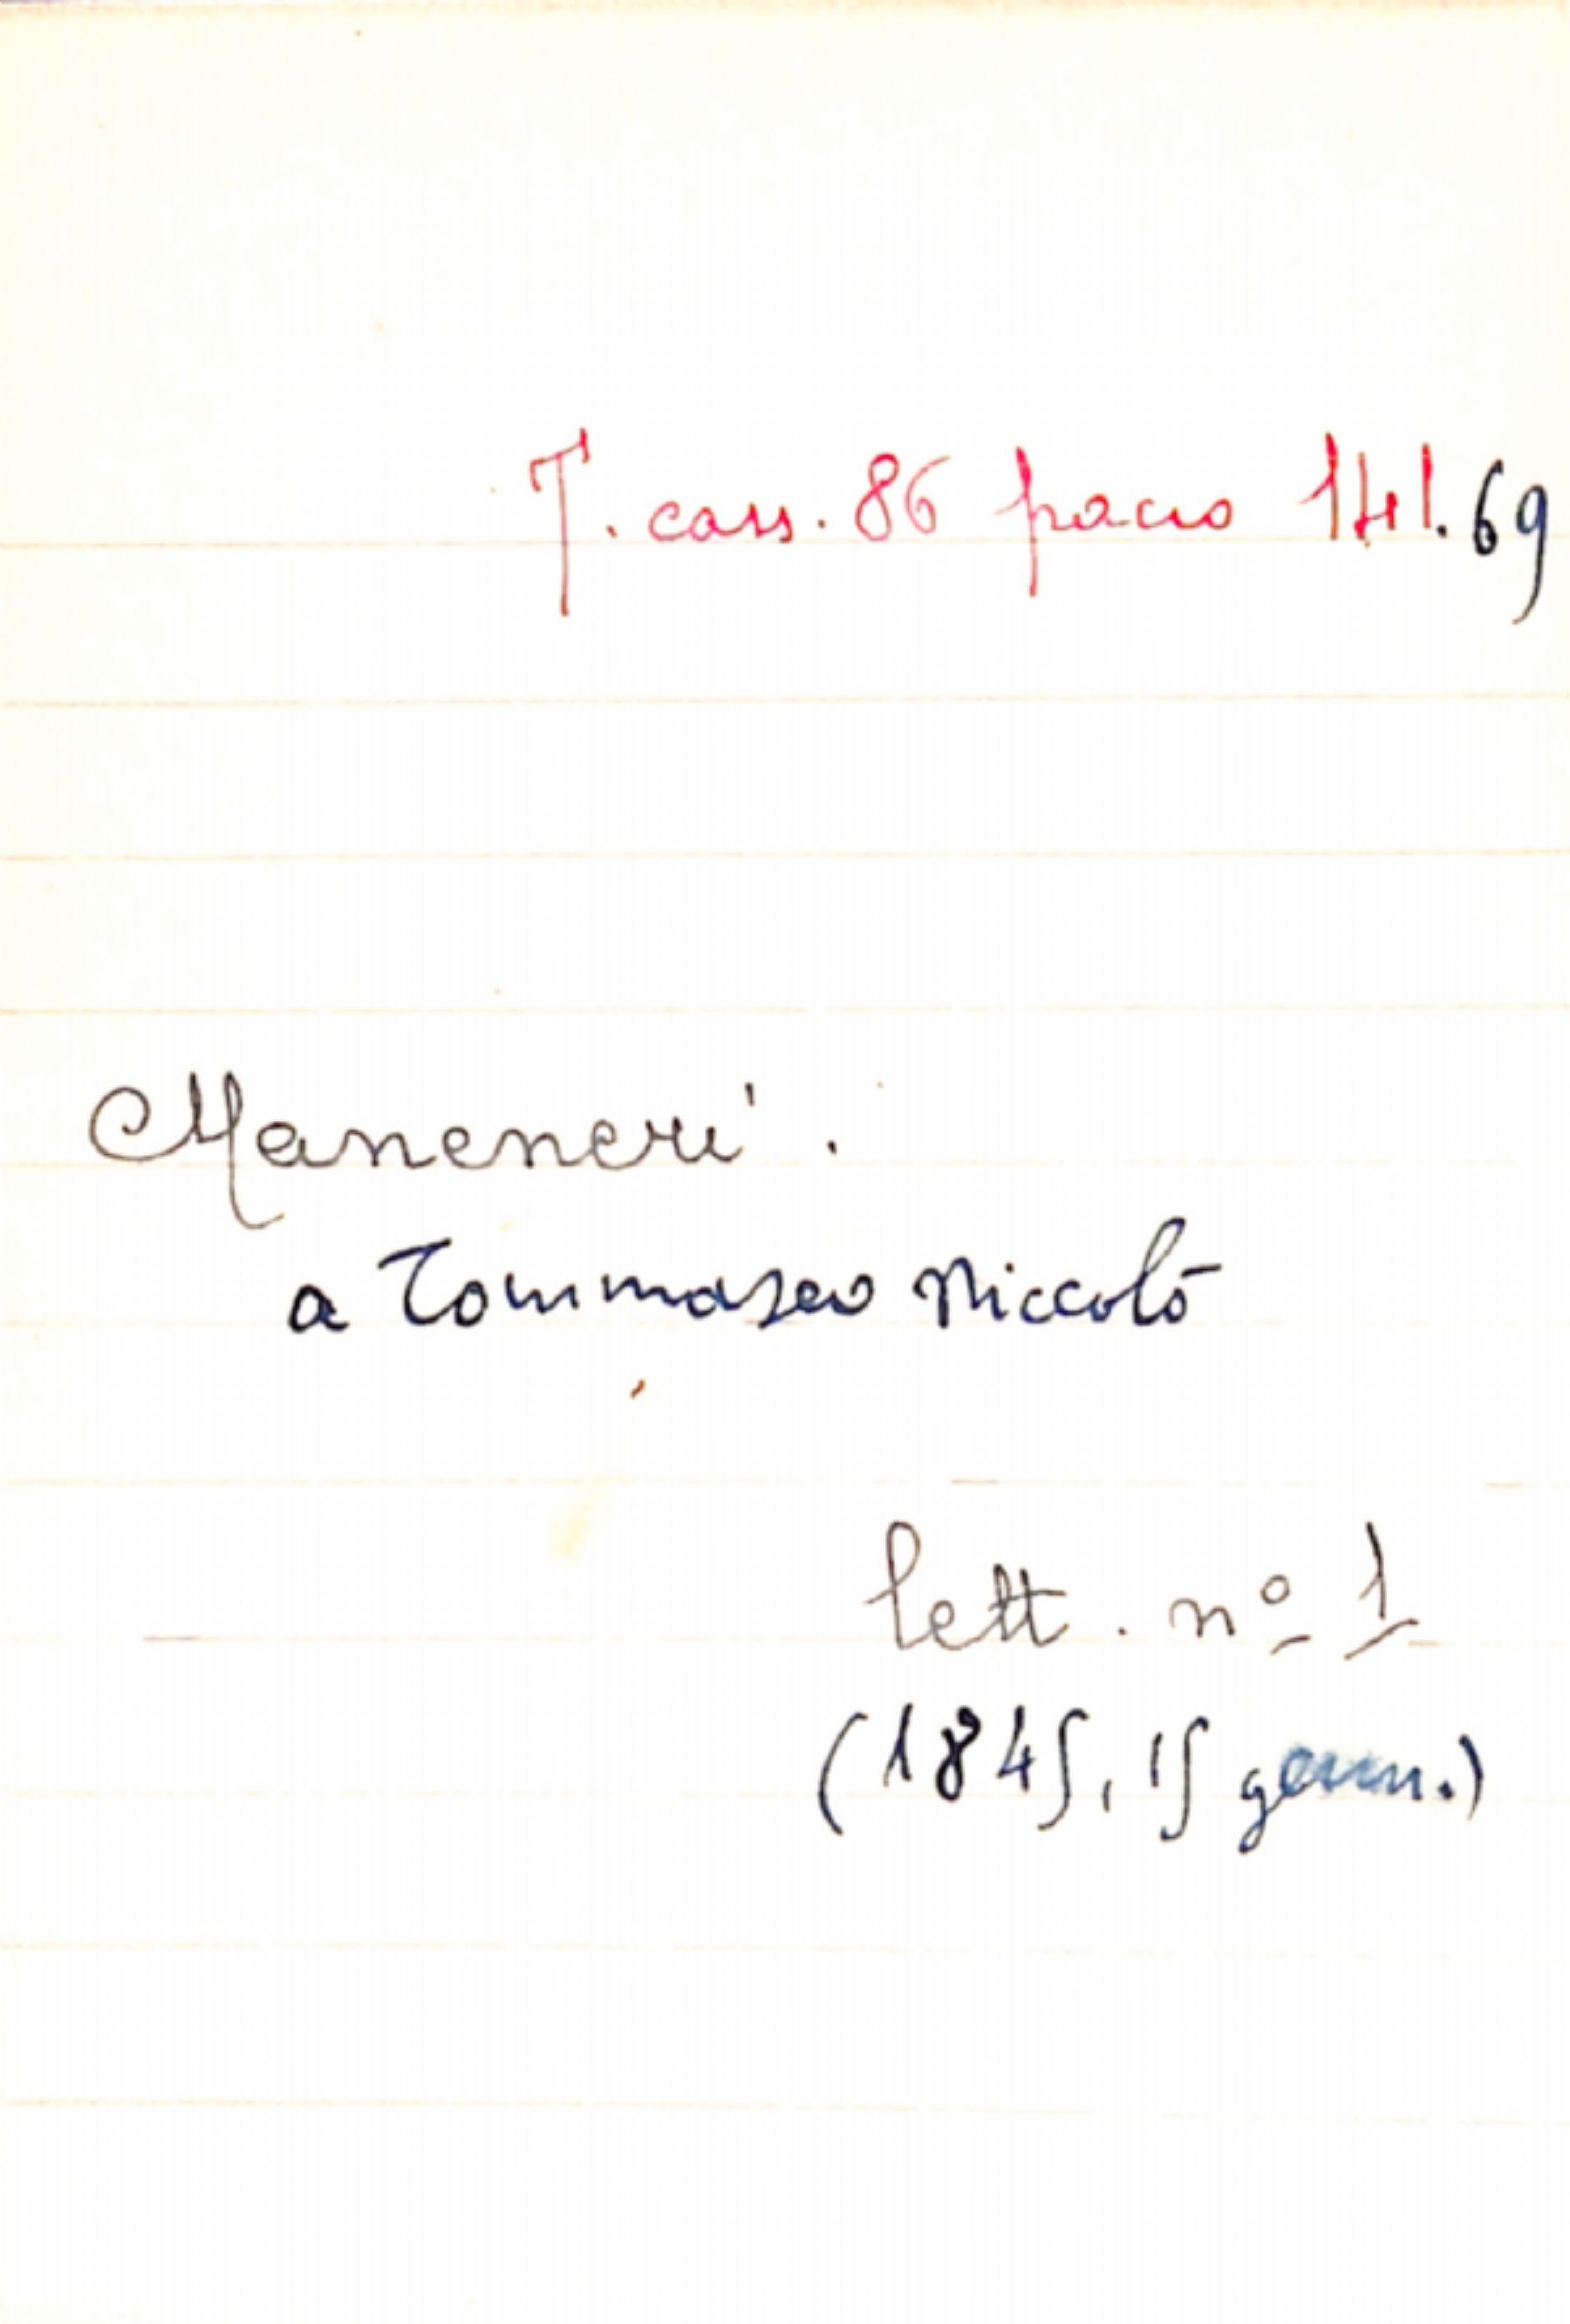 T. cass. 86 pacco 141.69
Maneneri'.
a Tommaseo Niccolò
lett. nº 1
(1845, 15 genn.)